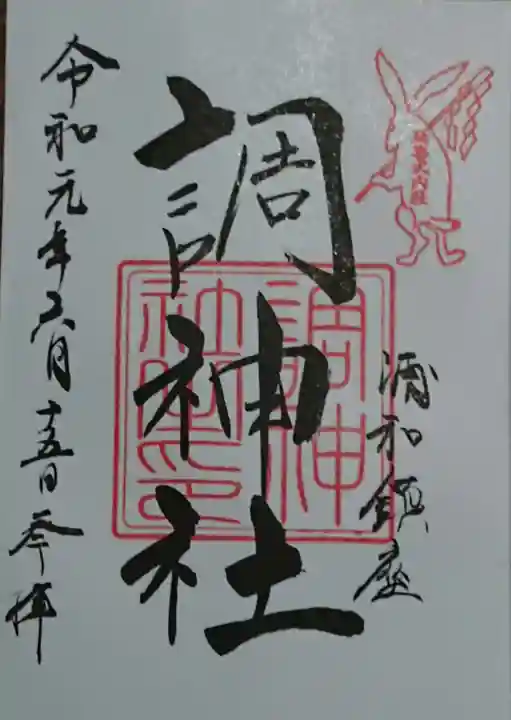 浦和鎮座
調神社
調神社之印
令和元年六月十五日参拝